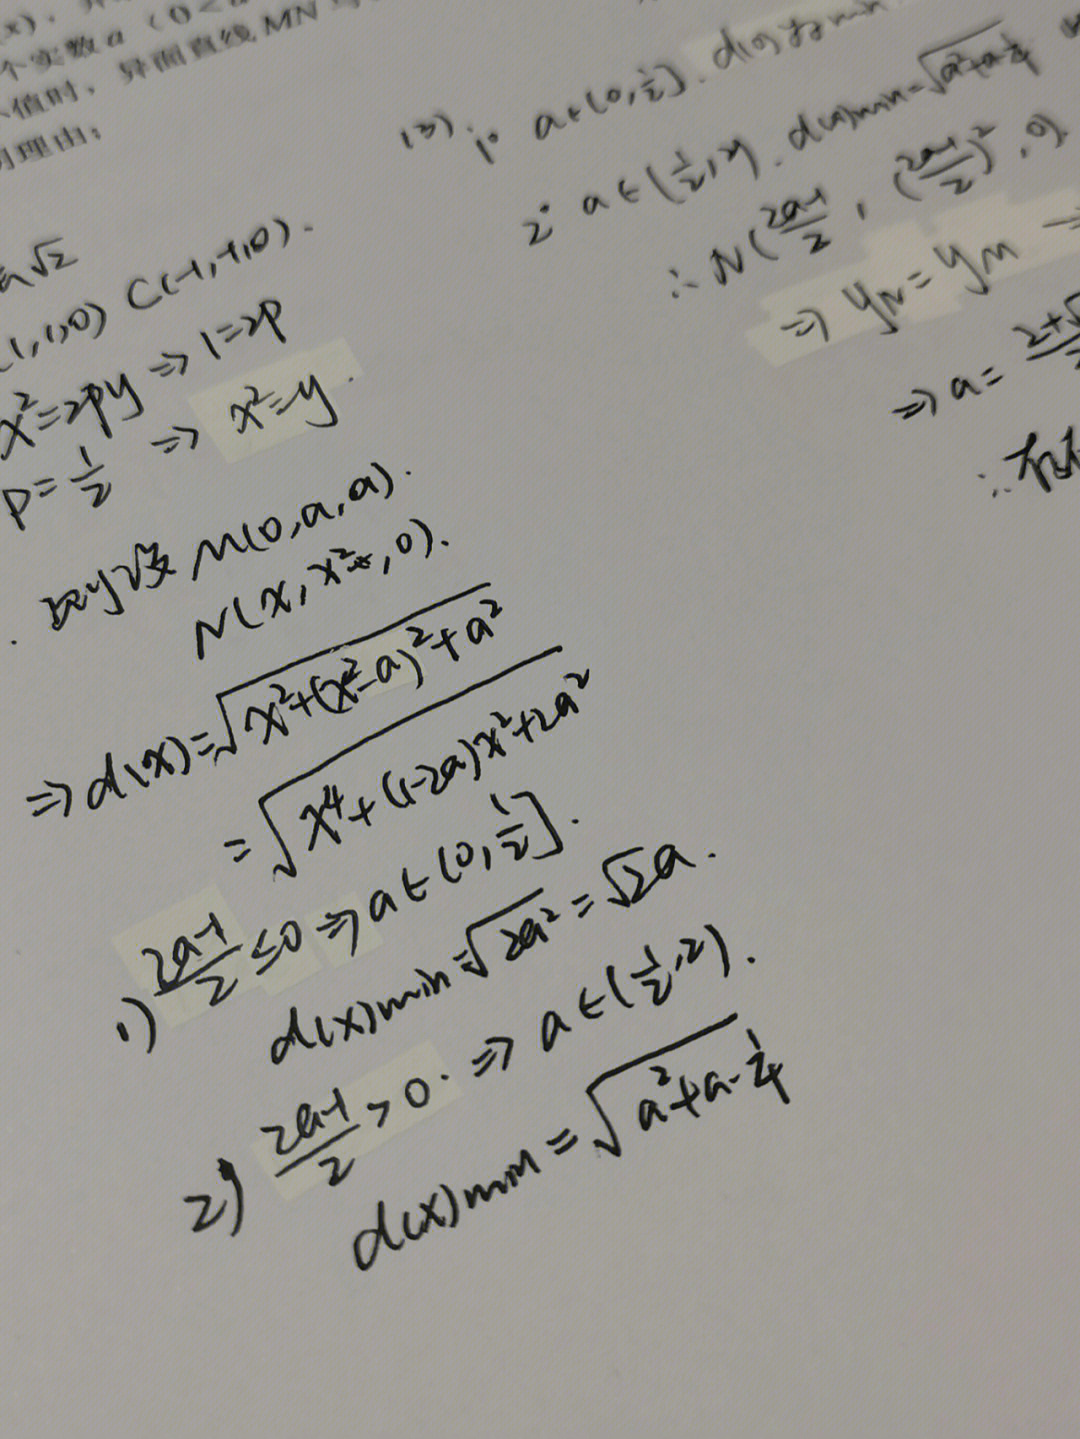 个实数a(0<a
值时,异面直线MN
理由:
√2
1,1,0) C(-1,-1,0).
x²=2py ⇒ 1=2p
P=1/2 ⇒ x²=y.
设M(0,a,a).
N(x,x²,0).
⇒ d(x)=√(x²+(x²-a)²+a²)
=√(x⁴+(1-2a)x²+2a²)
1) (2a-1)/2≤0 ⇒ a∈(0,1/2].
d(x)min=√(2a²)=√2a.
2) (2a-1)/2>0. ⇒ a∈(1/2,2).
d(x)min=√(a²+a-1/4)
(3) 1° a∈(0,1/2].
2° a∈(1/2,2). d(x)min=√(a²+a-1/4)
∴N((2a-1)/2,((2a-1)/2)²,0)
⇒ yN=yM ⇒
⇒ a=
∴存在